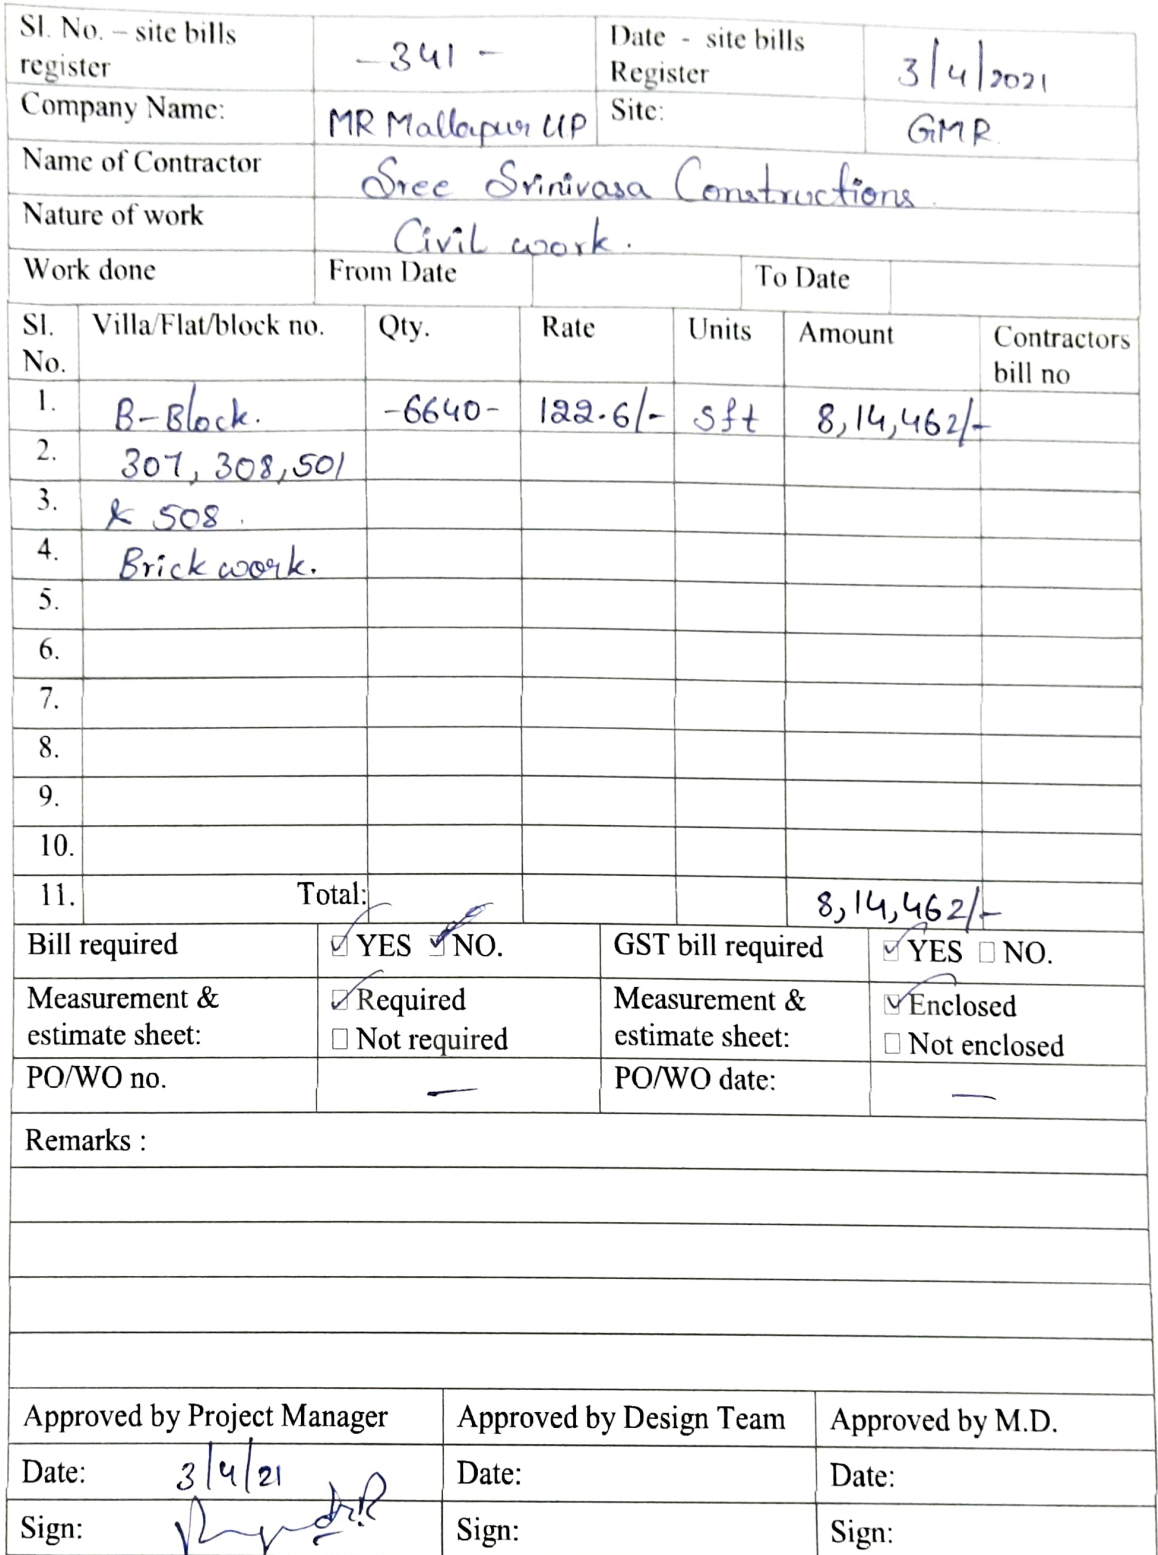 Sl. No. – site bills register -341- Date - site bills Register 3/4/2021
Company Name: MR Mallapur LLP Site: GMR.
Name of Contractor Sree Srinivasa Constructions.
Nature of work Civil work.
Work done From Date To Date
Sl. No. Villa/Flat/block no. Qty. Rate Units Amount Contractors bill no
1. B-Block. -6640- 122.6/- Sft 8,14,462/-
2. 307, 308, 501
3. & 508.
4. Brick work.
5.
6.
7.
8.
9.
10.
11. Total: 8,14,462/-
Bill required ☑ YES ☑ NO. GST bill required ☑ YES ☐ NO.
Measurement & estimate sheet: ☑ Required ☐ Not required Measurement & estimate sheet: ☑ Enclosed ☐ Not enclosed
PO/WO no. — PO/WO date: —
Remarks :
Approved by Project Manager Approved by Design Team Approved by M.D.
Date: 3/4/21 Date: Date:
Sign: Sign: Sign: